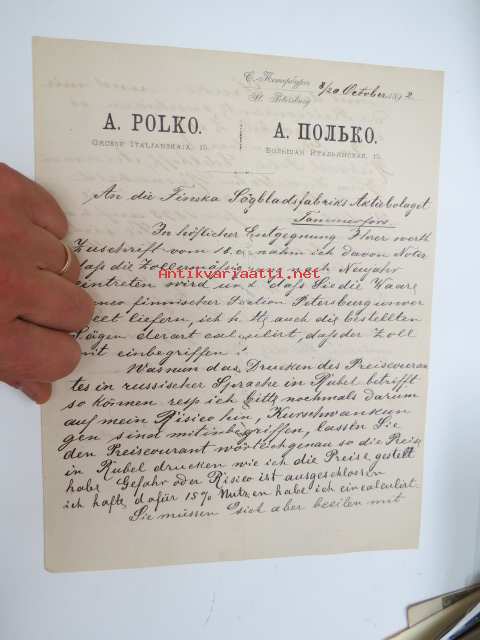 С. Петербургъ
St. Petersburg 8/20 October 1892.
A. POLKO. А. ПОЛЬКО.
GROSSE ITALJANSKAJA, 15. БОЛЬШАЯ ИТАЛЬЯНСКАЯ, 15.
An die Finska Sågbladsfabriks Aktiebolaget
Tammerfors.
In höflicher Entgegnung Ihrer werth
Zuschrift vom 18. nahm ich davon Notiz
daß die Zoll Neujahr
eintreten wird und daß Sie die Waare
finnischer Station Petersburg unver
liefern, ich auch die bestellten
Sägen derart calculirt, daß der Zoll
mit einbegriffen
Antikvariaatti.net
Was nun das Drucken des Preiscouran
tes in russischer Sprache in Rubel betrifft
so können resp ich bitte nochmals darum
auf mein Risico hin, Kursschwankun
gen sind mitinbegriffen, lassen Sie
den Preiscourant wörtlich genau so die Preise
in Rubel drucken wie ich die Preise gestellt
habe Gefahr oder Risico ist ausgeschlossen
ich hafte dafür 15% Nutzen habe ich eincalculirt.
Sie müssen sich aber beeilen mit